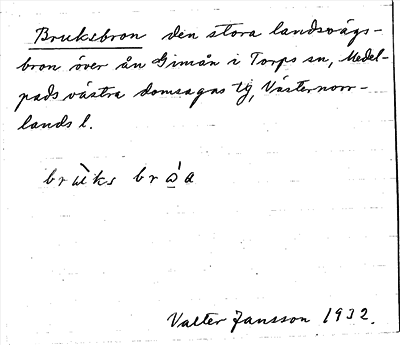 Bruksbron den stora landsvägs-
bron över ån Gimån i Torps sn, Medel-
pads västra domsagas tg, Västernorr-
lands l.
brùks brɷ́a
Valter Jansson 1932.